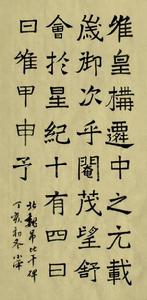 唯皇構遷中之元載
歲御次乎閹茂望舒
會於星紀十有四日
日唯甲申子
北魏吊比干碑
丁亥初冬